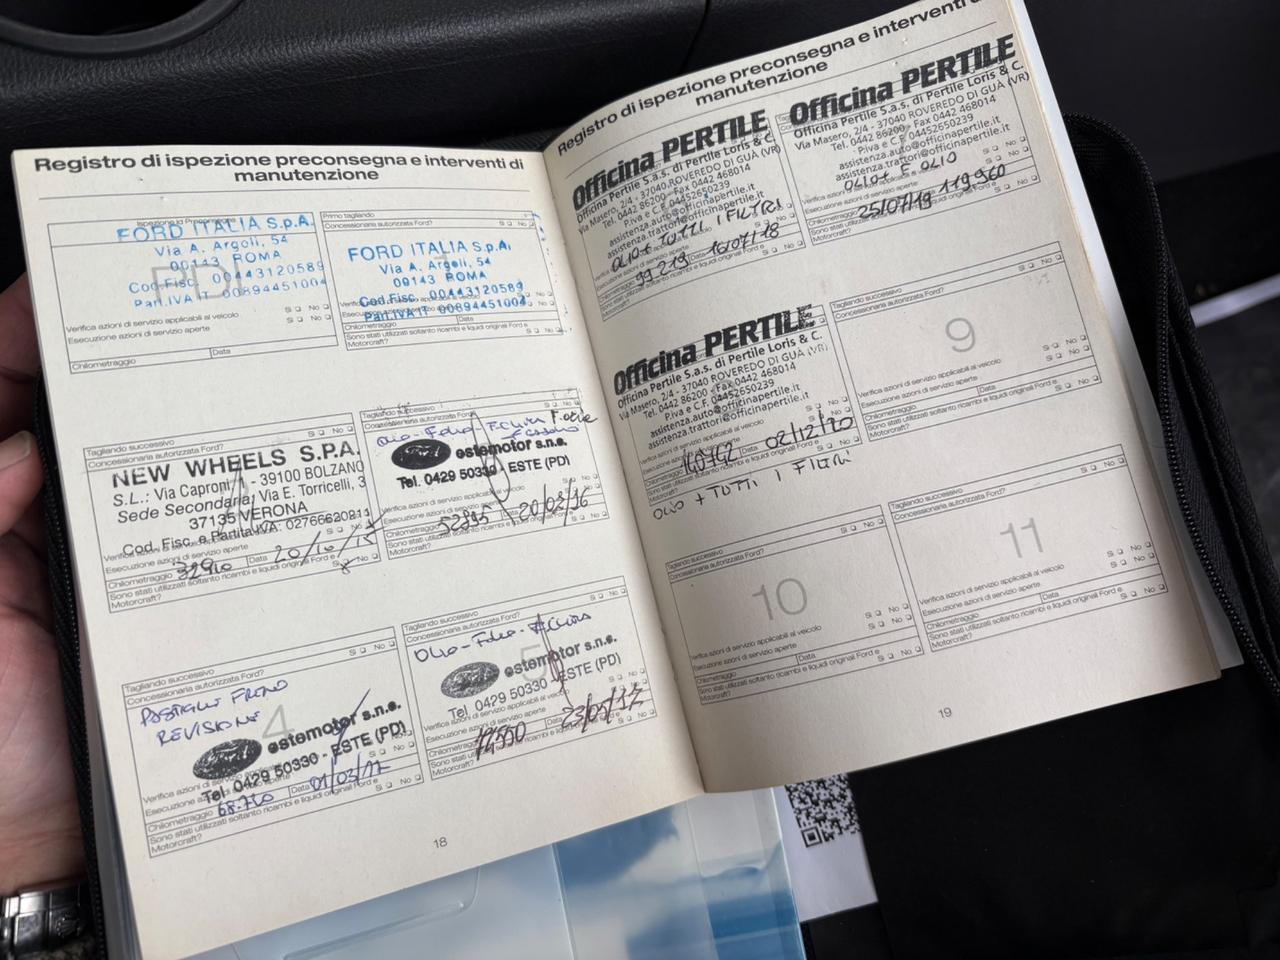 Registro di ispezione preconsegna e interventi di
manutenzione
Ispezione di Preconsegna
FORD ITALIA S.p.A.
Via A. Argoli, 54
00143 ROMA
Cod. Fisc. 00443120589
Part.IVA IT 00894451004
PDI
Verifica azioni di servizio applicabili al veicolo Sì No
Esecuzione azioni di servizio aperte Sì No
Chilometraggio Data
Primo tagliando
Concessionaria autorizzata Ford? Sì No
FORD ITALIA S.p.A.
Via A. Argoli, 54
00143 ROMA
Cod. Fisc. 00443120589
Part.IVA IT 00894451004
Chilometraggio Data
Sono stati utilizzati soltanto ricambi e liquidi originali Ford e
Motorcraft? Sì No
Tagliando successivo
Concessionaria autorizzata Ford? Sì No
NEW WHEELS S.P.A.
S.L.: Via Caproni, - 39100 BOLZANO
Sede Secondaria: Via E. Torricelli, 3
37135 VERONA
Cod. Fisc. e Partita IVA: 02766620211
Esecuzione azioni di servizio aperte
Chilometraggio 32910 Data 20/10/15
Sono stati utilizzati soltanto ricambi e liquidi originali Ford e
Motorcraft? Sì No
Tagliando successivo
Concessionaria autorizzata Ford? Sì No
estemotor s.n.c.
Tel. 0429 50330 - ESTE (PD)
Verifica azioni di servizio applicabili al veicolo Sì No
Esecuzione azioni di servizio aperte Sì No
Chilometraggio 52395 Data 20/03/16
Sono stati utilizzati soltanto ricambi e liquidi originali Ford e
Motorcraft? Sì No
Tagliando successivo
Concessionaria autorizzata Ford? Sì No
PASTIGLIE FRENO
REVISIONE
4
estemotor s.n.c.
Tel. 0429 50330 - ESTE (PD)
Verifica azioni di servizio aperte
Chilometraggio 68.710 Data 01/03/17
Sono stati utilizzati soltanto ricambi e liquidi originali Ford e
Motorcraft? Sì No
Tagliando successivo
Concessionaria autorizzata Ford? Sì No
5
estemotor s.n.c.
Tel. 0429 50330 - ESTE (PD)
Verifica azioni di servizio applicabili al veicolo
Esecuzione azioni di servizio aperte
Chilometraggio Data 23/05/17
Sono stati utilizzati soltanto ricambi e liquidi originali Ford e
Motorcraft? Sì No
18
Registro di ispezione preconsegna e interventi di
manutenzione
Officina PERTILE
Officina Pertile S.a.s. di Pertile Loris & C.
Via Masero, 2/4 - 37040 ROVEREDO DI GUÀ (VR)
Tel. 0442 86200 - Fax 0442 468014
P.iva e C.F. 04452650239
assistenza.auto@officinapertile.it
assistenza.trattori@officinapertile.it
OLIO + TUTTI I FILTRI
99219 16/07/18
Officina PERTILE
Officina Pertile S.a.s. di Pertile Loris & C.
Via Masero, 2/4 - 37040 ROVEREDO DI GUÀ (VR)
Tel. 0442 86200 - Fax 0442 468014
P.iva e C.F. 04452650239
assistenza.auto@officinapertile.it
assistenza.trattori@officinapertile.it
OLIO + F. OLIO
25/07/19 119960
Officina PERTILE
Officina Pertile S.a.s. di Pertile Loris & C.
Via Masero, 2/4 - 37040 ROVEREDO DI GUÀ (VR)
Tel. 0442 86200 - Fax 0442 468014
P.iva e C.F. 04452650239
assistenza.auto@officinapertile.it
assistenza.trattori@officinapertile.it
02/12/20
OLIO + TUTTI I FILTRI
Tagliando successivo
Concessionaria autorizzata Ford? Sì No
9
Verifica azioni di servizio applicabili al veicolo Sì No
Esecuzione azioni di servizio aperte Sì No
Chilometraggio Data
Sono stati utilizzati soltanto ricambi e liquidi originali Ford e
Motorcraft? Sì No
Tagliando successivo
Concessionaria autorizzata Ford? Sì No
10
Verifica azioni di servizio applicabili al veicolo Sì No
Esecuzione azioni di servizio aperte Sì No
Chilometraggio Data
Sono stati utilizzati soltanto ricambi e liquidi originali Ford e
Motorcraft? Sì No
Tagliando successivo
Concessionaria autorizzata Ford? Sì No
11
Verifica azioni di servizio applicabili al veicolo Sì No
Esecuzione azioni di servizio aperte Sì No
Chilometraggio Data
Sono stati utilizzati soltanto ricambi e liquidi originali Ford e
Motorcraft? Sì No
19